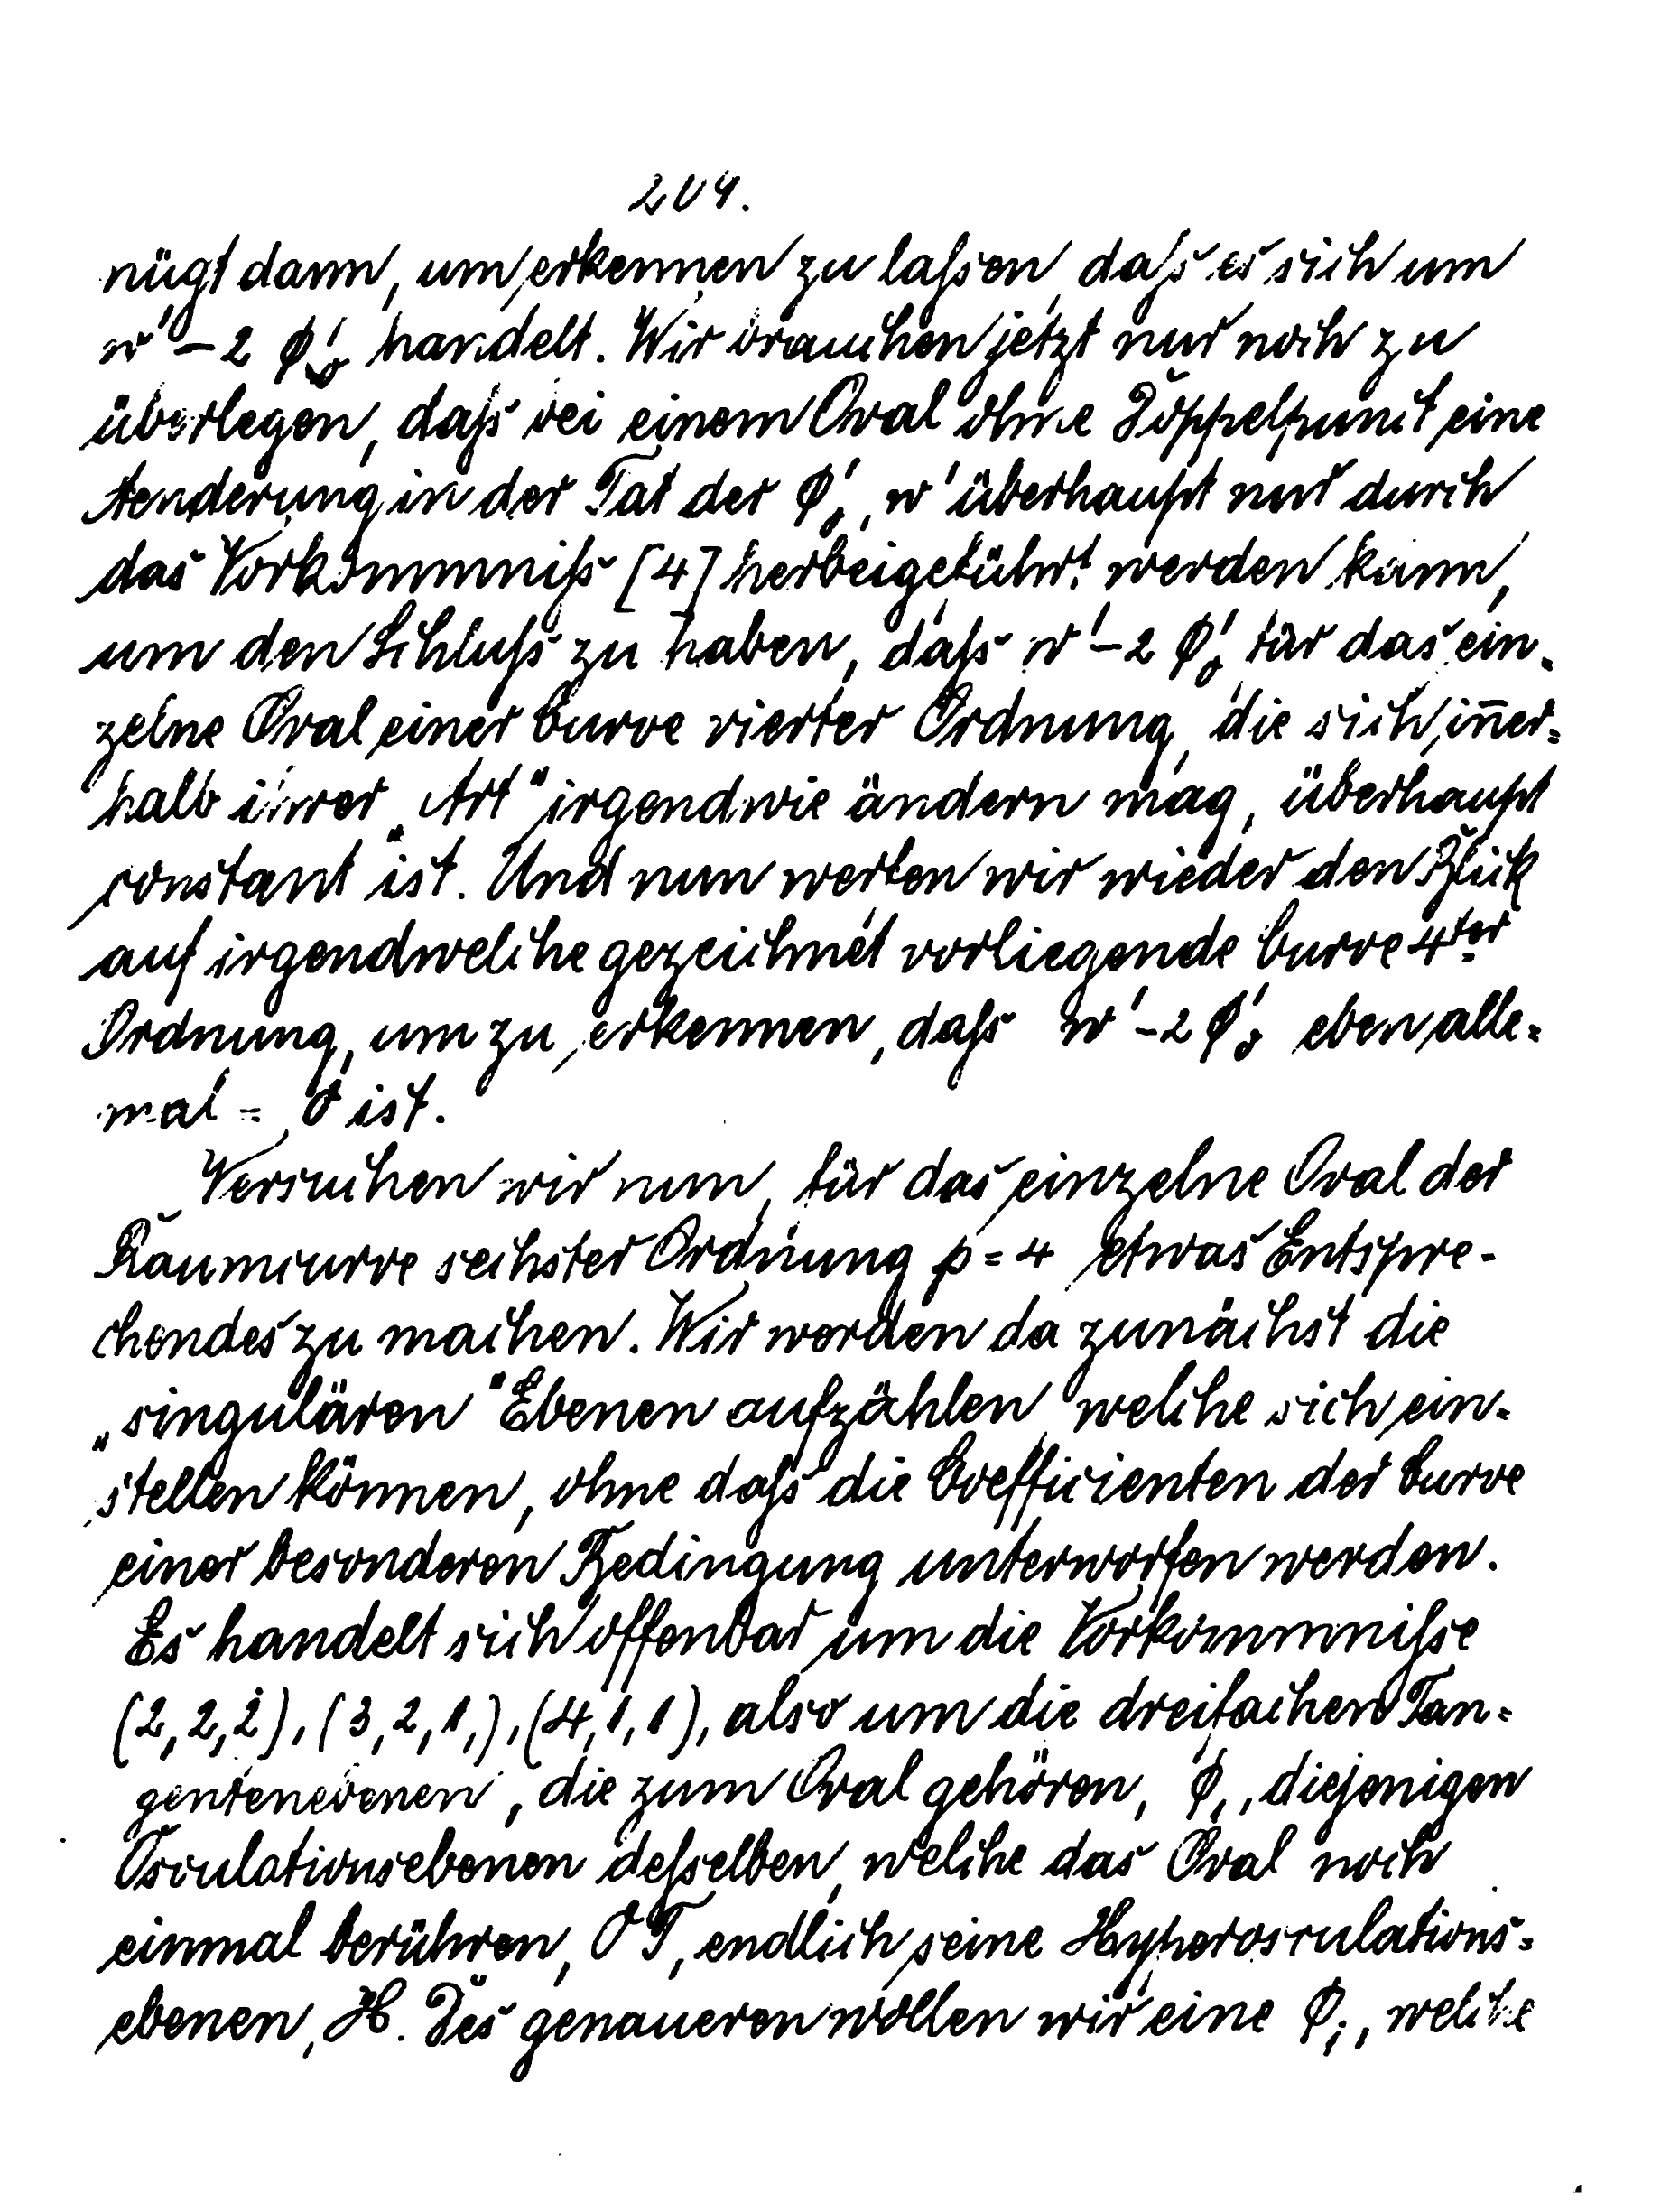 204.
nügt dann, um erkennen zu laſsen, daſs es sich um
w' – 2 ϕ'₀ handelt. Wir brauchen jetzt nur noch zu
überlegen, daſs bei einem Oval ohne Doppelpunct eine
Aenderung in der Tat der ϕ'₀, w' überhaupt nur durch
das Vorkommniſs [4] herbeigeführt werden kann,
um den Schluſs zu haben, daſs w' – 2 ϕ'₀ für das ein-
zelne Oval einer Curve vierter Ordnung, die sich iñer=
halb ihrer „Art" irgendwie ändern mag, überhaupt
constant ist. Und nun werfen wir wieder den Blick
auf irgendwelche gezeichnet vorliegende Curve 4ter
Ordnung, um zu erkennen, daſs w' – 2 ϕ'₀ eben alle=
mal = 0 ist.
Versuchen wir nun, für das einzelne Oval der
Raumcurve sechster Ordnung p = 4 etwas Entspre-
chendes zu machen. Wir werden da zunächst die
„singulären" Ebenen aufzählen, welche sich ein=
stellen können, ohne daſs die Coefficienten der Curve
einer besonderen Bedingung unterworfen werden.
Es handelt sich offenbar um die Vorkommniſse
(2, 2, 2), (3, 2, 1,), (4, 1, 1), also um die dreifachen Tan=
gentenebenen, die zum Oval gehören, ϕ,, diejenigen
Osculationsebenen deſselben, welche das Oval noch
einmal berühren, OT, endlich seine Hyperosculations=
ebenen, H. Des genaueren wollen wir eine ϕ,, welche